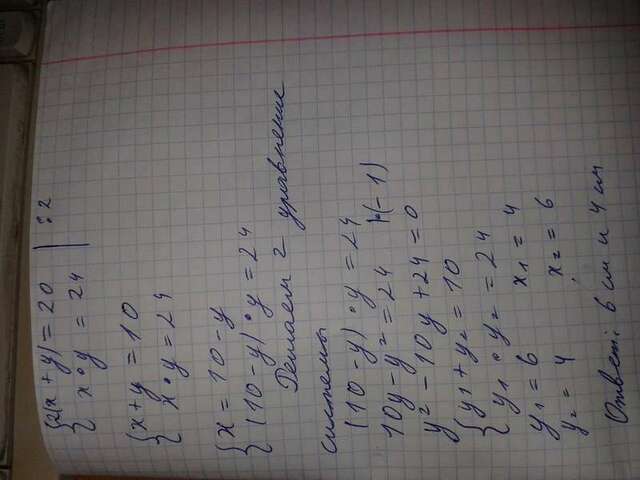 {2(x+y)=20 | :2
{ x•y = 24
{x+y = 10
{ x•y = 24
{x = 10-y
{(10-y)•y = 24
Решаем 2 уравнение
системы
(10-y)•y = 24
10y-y² = 24 |•(-1)
y²-10y+24 = 0
{y1+y2 = 10
{y1•y2 = 24
y1 = 6 x1 = 4
y2 = 4 x2 = 6
Ответ: 6 см и 4 см